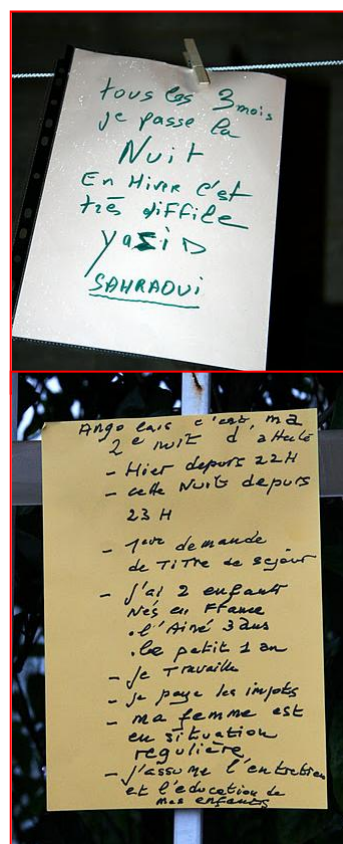 tous les 3 mois
je passe la
Nuit
En Hiver c'est
très diffile
yaziD
SAHRAOUI
Angolais c'est, ma
2e nuit d'attente
- Hier depuis 22H
- cette Nuit depuis
23 H
- 1ere demande
de TITRE de sejour
- j'ai 2 enfants
Nés en France
. l'Ainé 3 ans
. le petit 1 an
- je Travaille
- je paye les impots
- ma femme est
en situation
regulière
- j'assume l'entretien
et l'education de
mes enfants